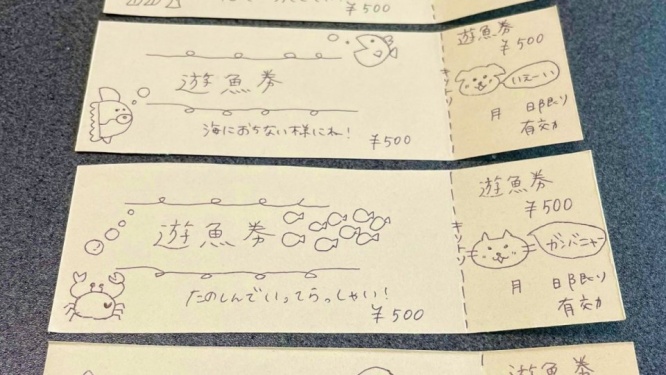 ¥500
遊魚券
海におちない様にね！
¥500
キリトリ
遊魚券
¥500
いえーい
月 日限り
有効
遊魚券
たのしんでいってらっしゃい！
¥500
キリトリ
遊魚券
¥500
ガンバニャ
月 日限り
有効
遊魚券